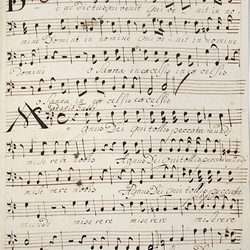 Benedictus qui venit Qui ve nit in no
mine Domini in nomine Qui ve nit in nomine
Domini o Sanna in excelsis in ex celsis
o Sanna in ex celsis ex celsis
Agnus Dei Qui tollis peccata mundi
mise rere nobis Agnus Dei Qui tollis peccata mundi
mise rere nobis Agnus Dei Qui tollis peccata
mundi mise rere mise rere mise rere